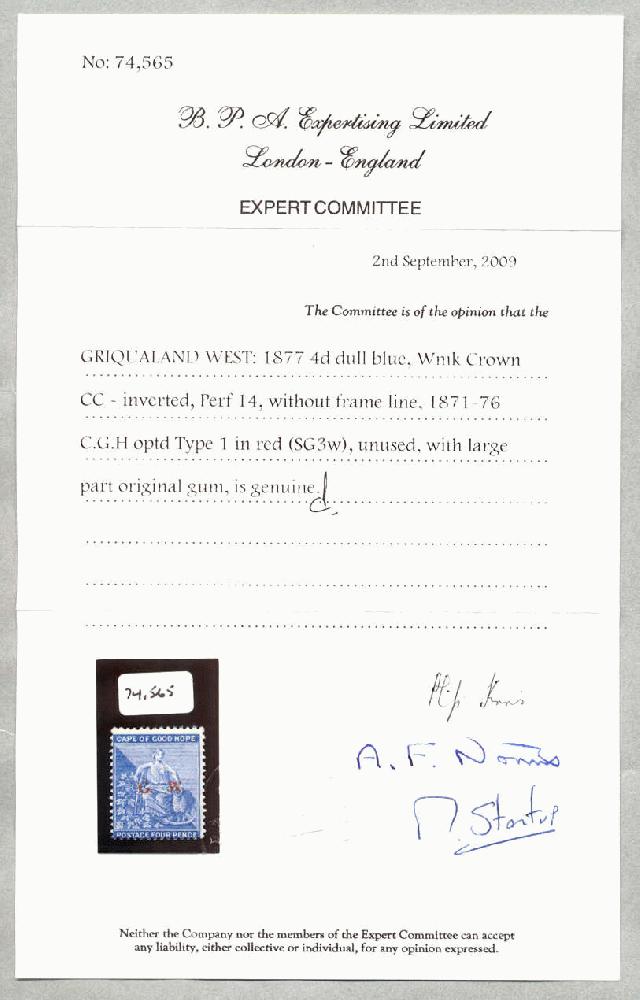 No: 74,565
B. P. A. Expertising Limited
London - England
EXPERT COMMITTEE
2nd September, 2009
The Committee is of the opinion that the
GRIQUALAND WEST: 1877 4d dull blue, Wmk Crown
CC - inverted, Perf 14, without frame line, 1871-76
C.G.H optd Type 1 in red (SG3w), unused, with large
part original gum, is genuine.
74,565
CAPE OF GOOD HOPE
G W
POSTAGE FOUR PENCE
A. F. Norris
P. Startup
Neither the Company nor the members of the Expert Committee can accept
any liability, either collective or individual, for any opinion expressed.